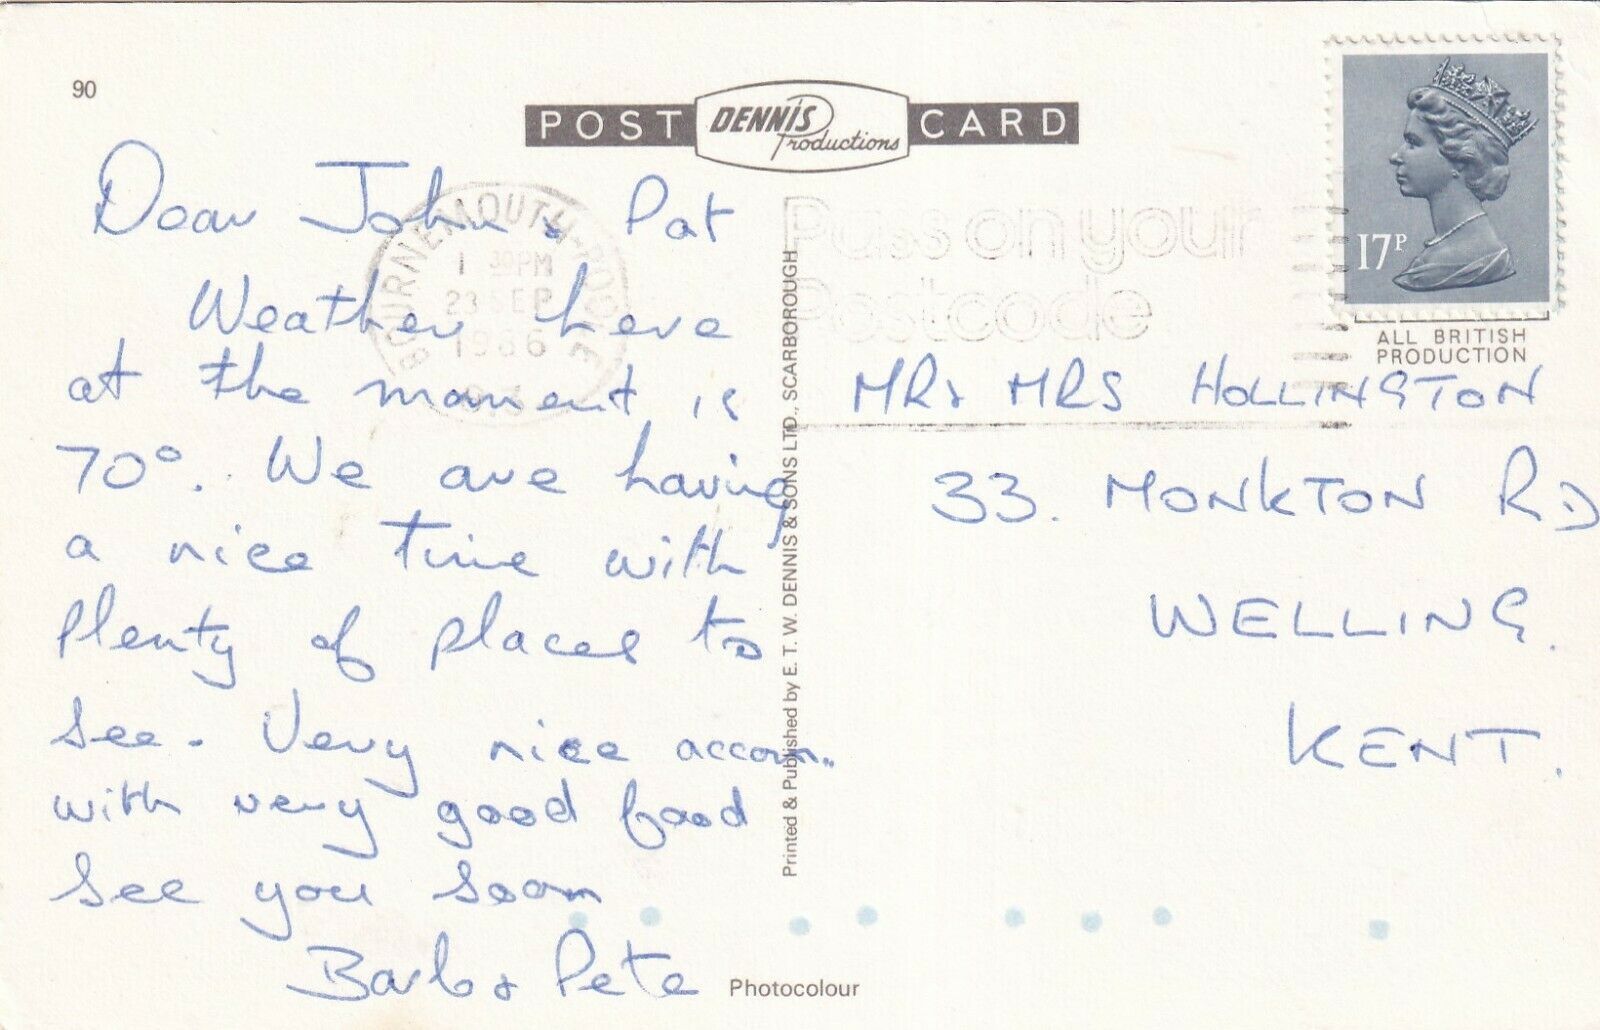 90
POST DENNIS Productions CARD
Dear John & Pat
Weather here
at the moment is
70°. We are having
a nice time with
plenty of places to
see. Very nice accom.
with very good food
see you soon
Barb & Pete
BOURNEMOUTH-POOLE
1 30PM
23 SEP
1986
Pass on your
Postcode
17P
ALL BRITISH
PRODUCTION
MR & MRS HOLLINGTON
33. MONKTON RD
WELLING.
KENT.
Printed & Published by E. T. W. DENNIS & SONS LTD., SCARBOROUGH
Photocolour